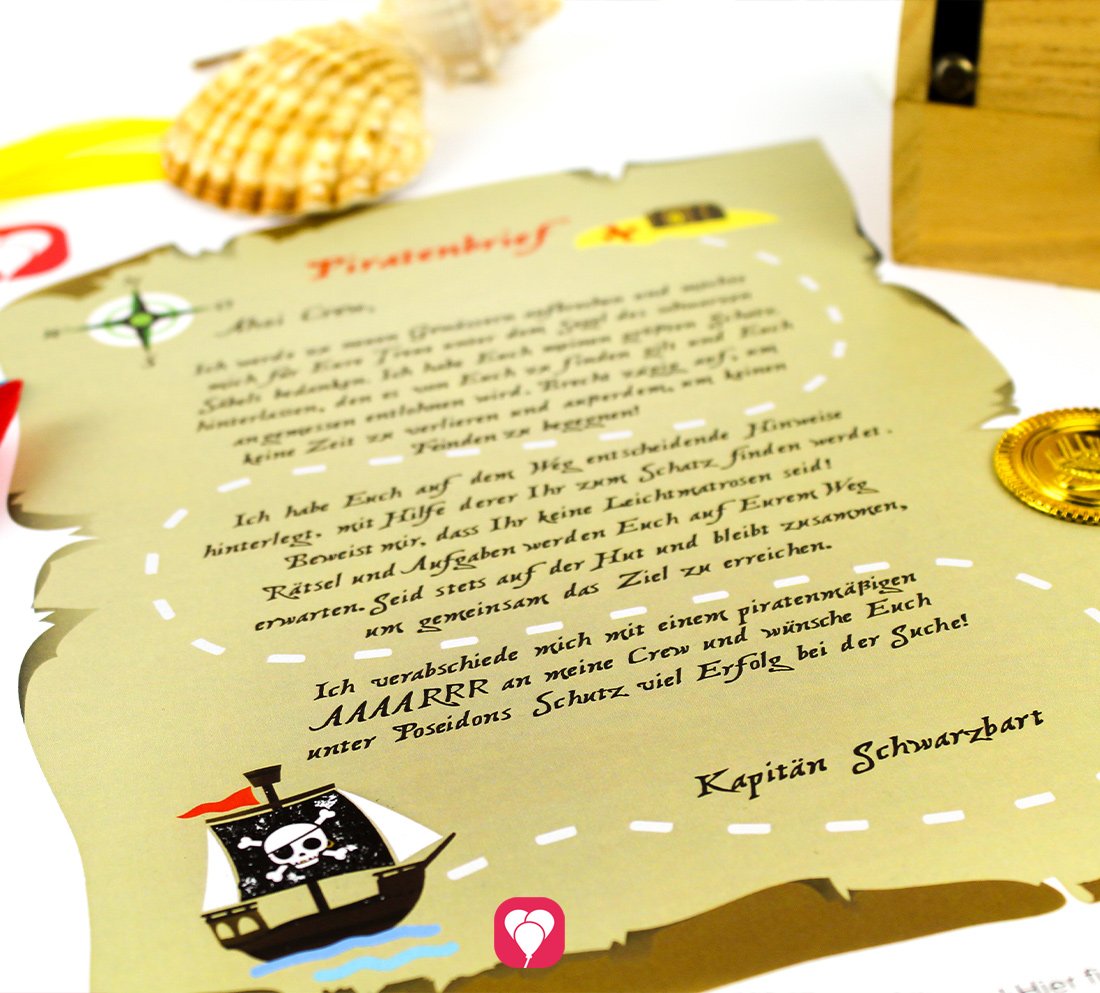 Piratenbrief
Ahoi Crew,
Ich werde zu neuen Gewässern aufbrechen und möchte
mich für Eure Treue unter dem Segel des schwarzen
Säbels bedanken. Ich habe Euch meinen größten Schatz
hinterlassen, den es von Euch zu finden gilt und Euch
angemessen entlohnen wird. Brecht zügig auf, um
keine Zeit zu verlieren und außerdem, um keinen
Feinden zu begegnen!
Ich habe Euch auf dem Weg entscheidende Hinweise
hinterlegt, mit Hilfe derer Ihr zum Schatz finden werdet.
Beweist mir, dass Ihr keine Leichtmatrosen seid!
Rätsel und Aufgaben werden Euch auf Eurem Weg
erwarten. Seid stets auf der Hut und bleibt zusammen,
um gemeinsam das Ziel zu erreichen.
Ich verabschiede mich mit einem piratenmäßigen
AAAARRR an meine Crew und wünsche Euch
unter Poseidons Schutz viel Erfolg bei der Suche!
Kapitän Schwarzbart
Hier